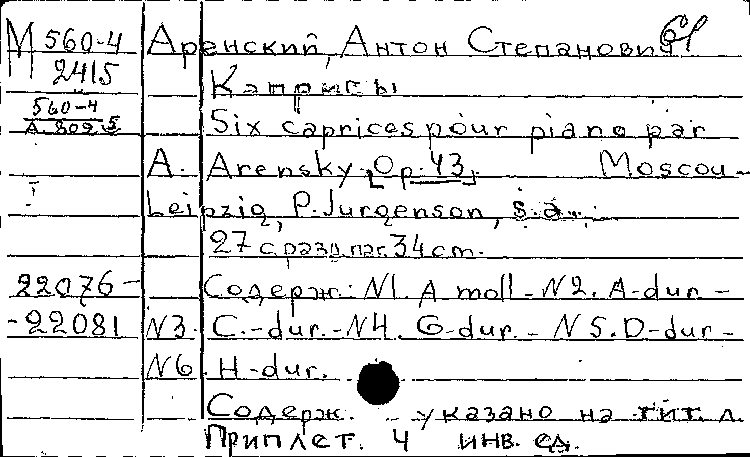 М 560-4 Аренский, Антон Степанович
2415 Каприсы
560-4
А 809 Six caprices pour piano par
A. Arensky [Op. 43]. Moscou-
I Leipzig, P. Jurgenson, s.a.
27 с. разд. паг. 34 cm.
22076- Содерж: N1. A moll - N2. A-dur -
-22081 N3. C.-dur. - N4. G-dur. - N5. D-dur -
N6. H-dur.
Содерж. указано на тит. л.
Приплет. 4 инв. ед.